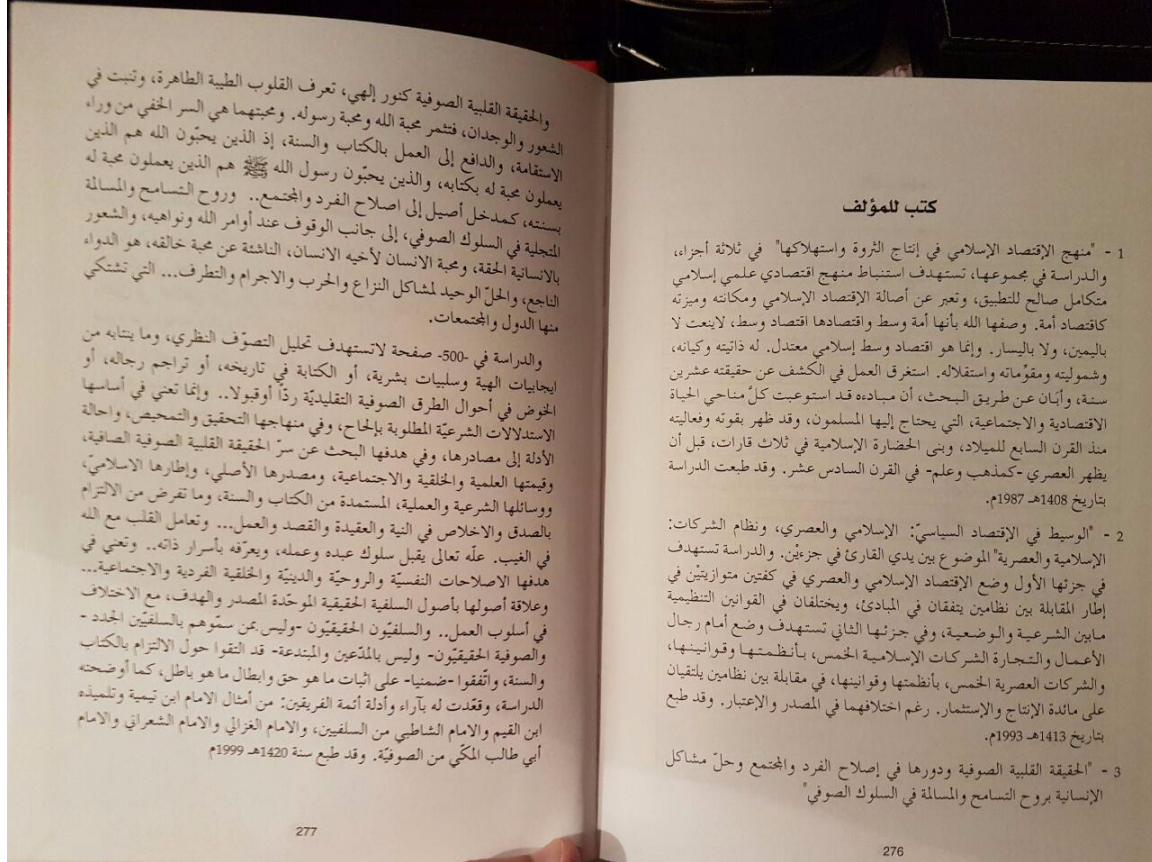 كتب للمؤلف
1 - "منهج الإقتصاد الإسلامي في إنتاج الثروة واستهلاكها" في ثلاثة أجزاء،
والدراسة في مجموعها، تستهدف استنباط منهج اقتصادي علمي إسلامي
متكامل صالح للتطبيق، وتعبر عن أصالة الإقتصاد الإسلامي ومكانته وميزته
كاقتصاد أمة. وصفها الله بأنها أمة وسط واقتصادها اقتصاد وسط، لاينعت لا
باليمين، ولا باليسار. وإنما هو اقتصاد وسط إسلامي معتدل. له ذاتيته وكيانه،
وشموليته ومقوّماته واستقلاله. استغرق العمل في الكشف عن حقيقته عشرين
سنة، وأبَان عن طريق البحث، أن مبادءه قد استوعبت كلَّ مناحي الحياة
الاقتصادية والاجتماعية، التي يحتاج إليها المسلمون، وقد ظهر بقوته وفعاليته
منذ القرن السابع للميلاد، وبنى الحضارة الإسلامية في ثلاث قارات، قبل أن
يظهر العصري -كمذهب وعلم- في القرن السادس عشر. وقد طبعت الدراسة
بتاريخ 1408هـ 1987م.
2 - "الوسيط في الإقتصاد السياسيّ: الإسلامي والعصري، ونظام الشركات:
الإسلامية والعصرية" الموضوع بين يدي القارئ في جزءيْن. والدراسة تستهدف
في جزئها الأول وضع الإقتصاد الإسلامي والعصري في كفتين متوازيتيْن في
إطار المقابلة بين نظامين يتفقان في المبادئ، ويختلفان في القوانين التنظيمية
مابين الشرعية والوضعية، وفي جزئها الثاني تستهدف وضع أمام رجال
الأعمال والتجارة الشركات الإسلامية الخمس، بأنظمتها وقوانينها،
والشركات العصرية الخمس، بأنظمتها وقوانينها، في مقابلة بين نظامين يلتقيان
على مائدة الإنتاج والإستثمار. رغم اختلافهما في المصدر والإعتبار. وقد طبع
بتاريخ 1413هـ 1993م.
3 - "الحقيقة القلبية الصوفية ودورها في إصلاح الفرد والمجتمع وحلّ مشاكل
الإنسانية بروح التسامح والمسالمة في السلوك الصوفي"
276
والحقيقة القلبية الصوفية كنور إلهي، تعرف القلوب الطيبة الطاهرة، وتنبت في
الشعور والوجدان، فتثمر محبة الله ومحبة رسوله. ومحبتهما هي السر الخفي من وراء
الاستقامة، والدافع إلى العمل بالكتاب والسنة، إذ الذين يحبّون الله هم الذين
يعملون محبة له بكتابه، والذين يحبّون رسول الله ﷺ هم الذين يعملون محبة له
بسنته، كمدخل أصيل إلى اصلاح الفرد والمجتمع.. وروح التسامح والمسالمة
المتجلية في السلوك الصوفي، إلى جانب الوقوف عند أوامر الله ونواهيه، والشعور
بالانسانية الحقة، ومحبة الانسان لأخيه الانسان، الناشئة عن محبة خالقه، هو الدواء
الناجع، والحلّ الوحيد لمشاكل النزاع والحرب والاجرام والتطرف... التي تشتكي
منها الدول والمجتمعات.
والدراسة في -500- صفحة لاتستهدف تحليل التصوّف النظري، وما ينتابه من
ايجابيات الهية وسلبيات بشرية، أو الكتابة في تاريخه، أو تراجم رجاله، أو
الخوض في أحوال الطرق الصوفية التقليديّة ردّا أوقبولا.. وإنما تعني في أساسها
الاستدلالات الشرعيّة المطلوبة بإلحاح، وفي منهاجها التحقيق والتمحيص، واحالة
الأدلة إلى مصادرها، وفي هدفها البحث عن سرّ الحقيقة القلبية الصوفية الصافية،
وقيمتها العلمية والخلقية والاجتماعية، ومصدرها الأصلي، وإطارها الاسلاميّ،
ووسائلها الشرعية والعملية، المستمدة من الكتاب والسنة، وما تفرض من الالتزام
بالصدق والاخلاص في النية والعقيدة والقصد والعمل... وتعامل القلب مع الله
في الغيب. علّه تعالى يقبل سلوك عبده وعمله، ويعرّفه بأسرار ذاته.. وتعني في
هدفها الاصلاحات النفسيّة والروحيّة والدينيّة والخلقية الفردية والاجتماعية...
وعلاقة أصولها بأصول السلفية الحقيقية الموحّدة المصدر والهدف، مع الاختلاف
في أسلوب العمل.. والسلفيّون الحقيقيّون -وليس بمن سمّوهم بالسلفيّين الجدد-
والصوفية الحقيقيّون- وليس بالمدّعين والمبتدعة- قد التقوا حول الالتزام بالكتاب
والسنة، واتّفقوا -ضمنيا- على اثبات ما هو حق وابطال ما هو باطل، كما أوضحته
الدراسة، وقعّدت له بآراء وأدلة أئمة الفريقين: من أمثال الامام ابن تيمية وتلميذه
ابن القيم والامام الشاطبي من السلفيين، والامام الغزالي والامام الشعراني والامام
أبي طالب المكّي من الصوفيّة. وقد طبع سنة 1420هـ 1999م
277